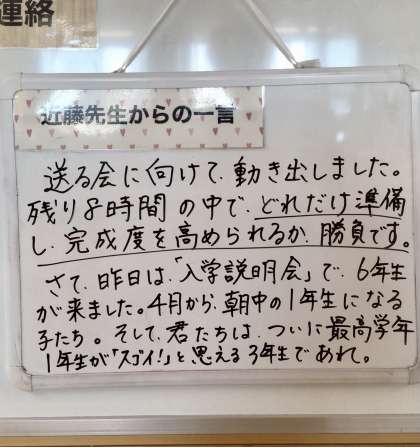 連絡
近藤先生からの一言
送る会に向けて、動き出しました。
残り8時間の中で、どれだけ準備
し、完成度を高められるか、勝負です。
さて、昨日は、「入学説明会」で、6年生
が来ました。4月から、朝中の1年生になる
子たち。そして、君たちは、ついに最高学年
1年生が「スゴイ!」と思える3年生であれ。